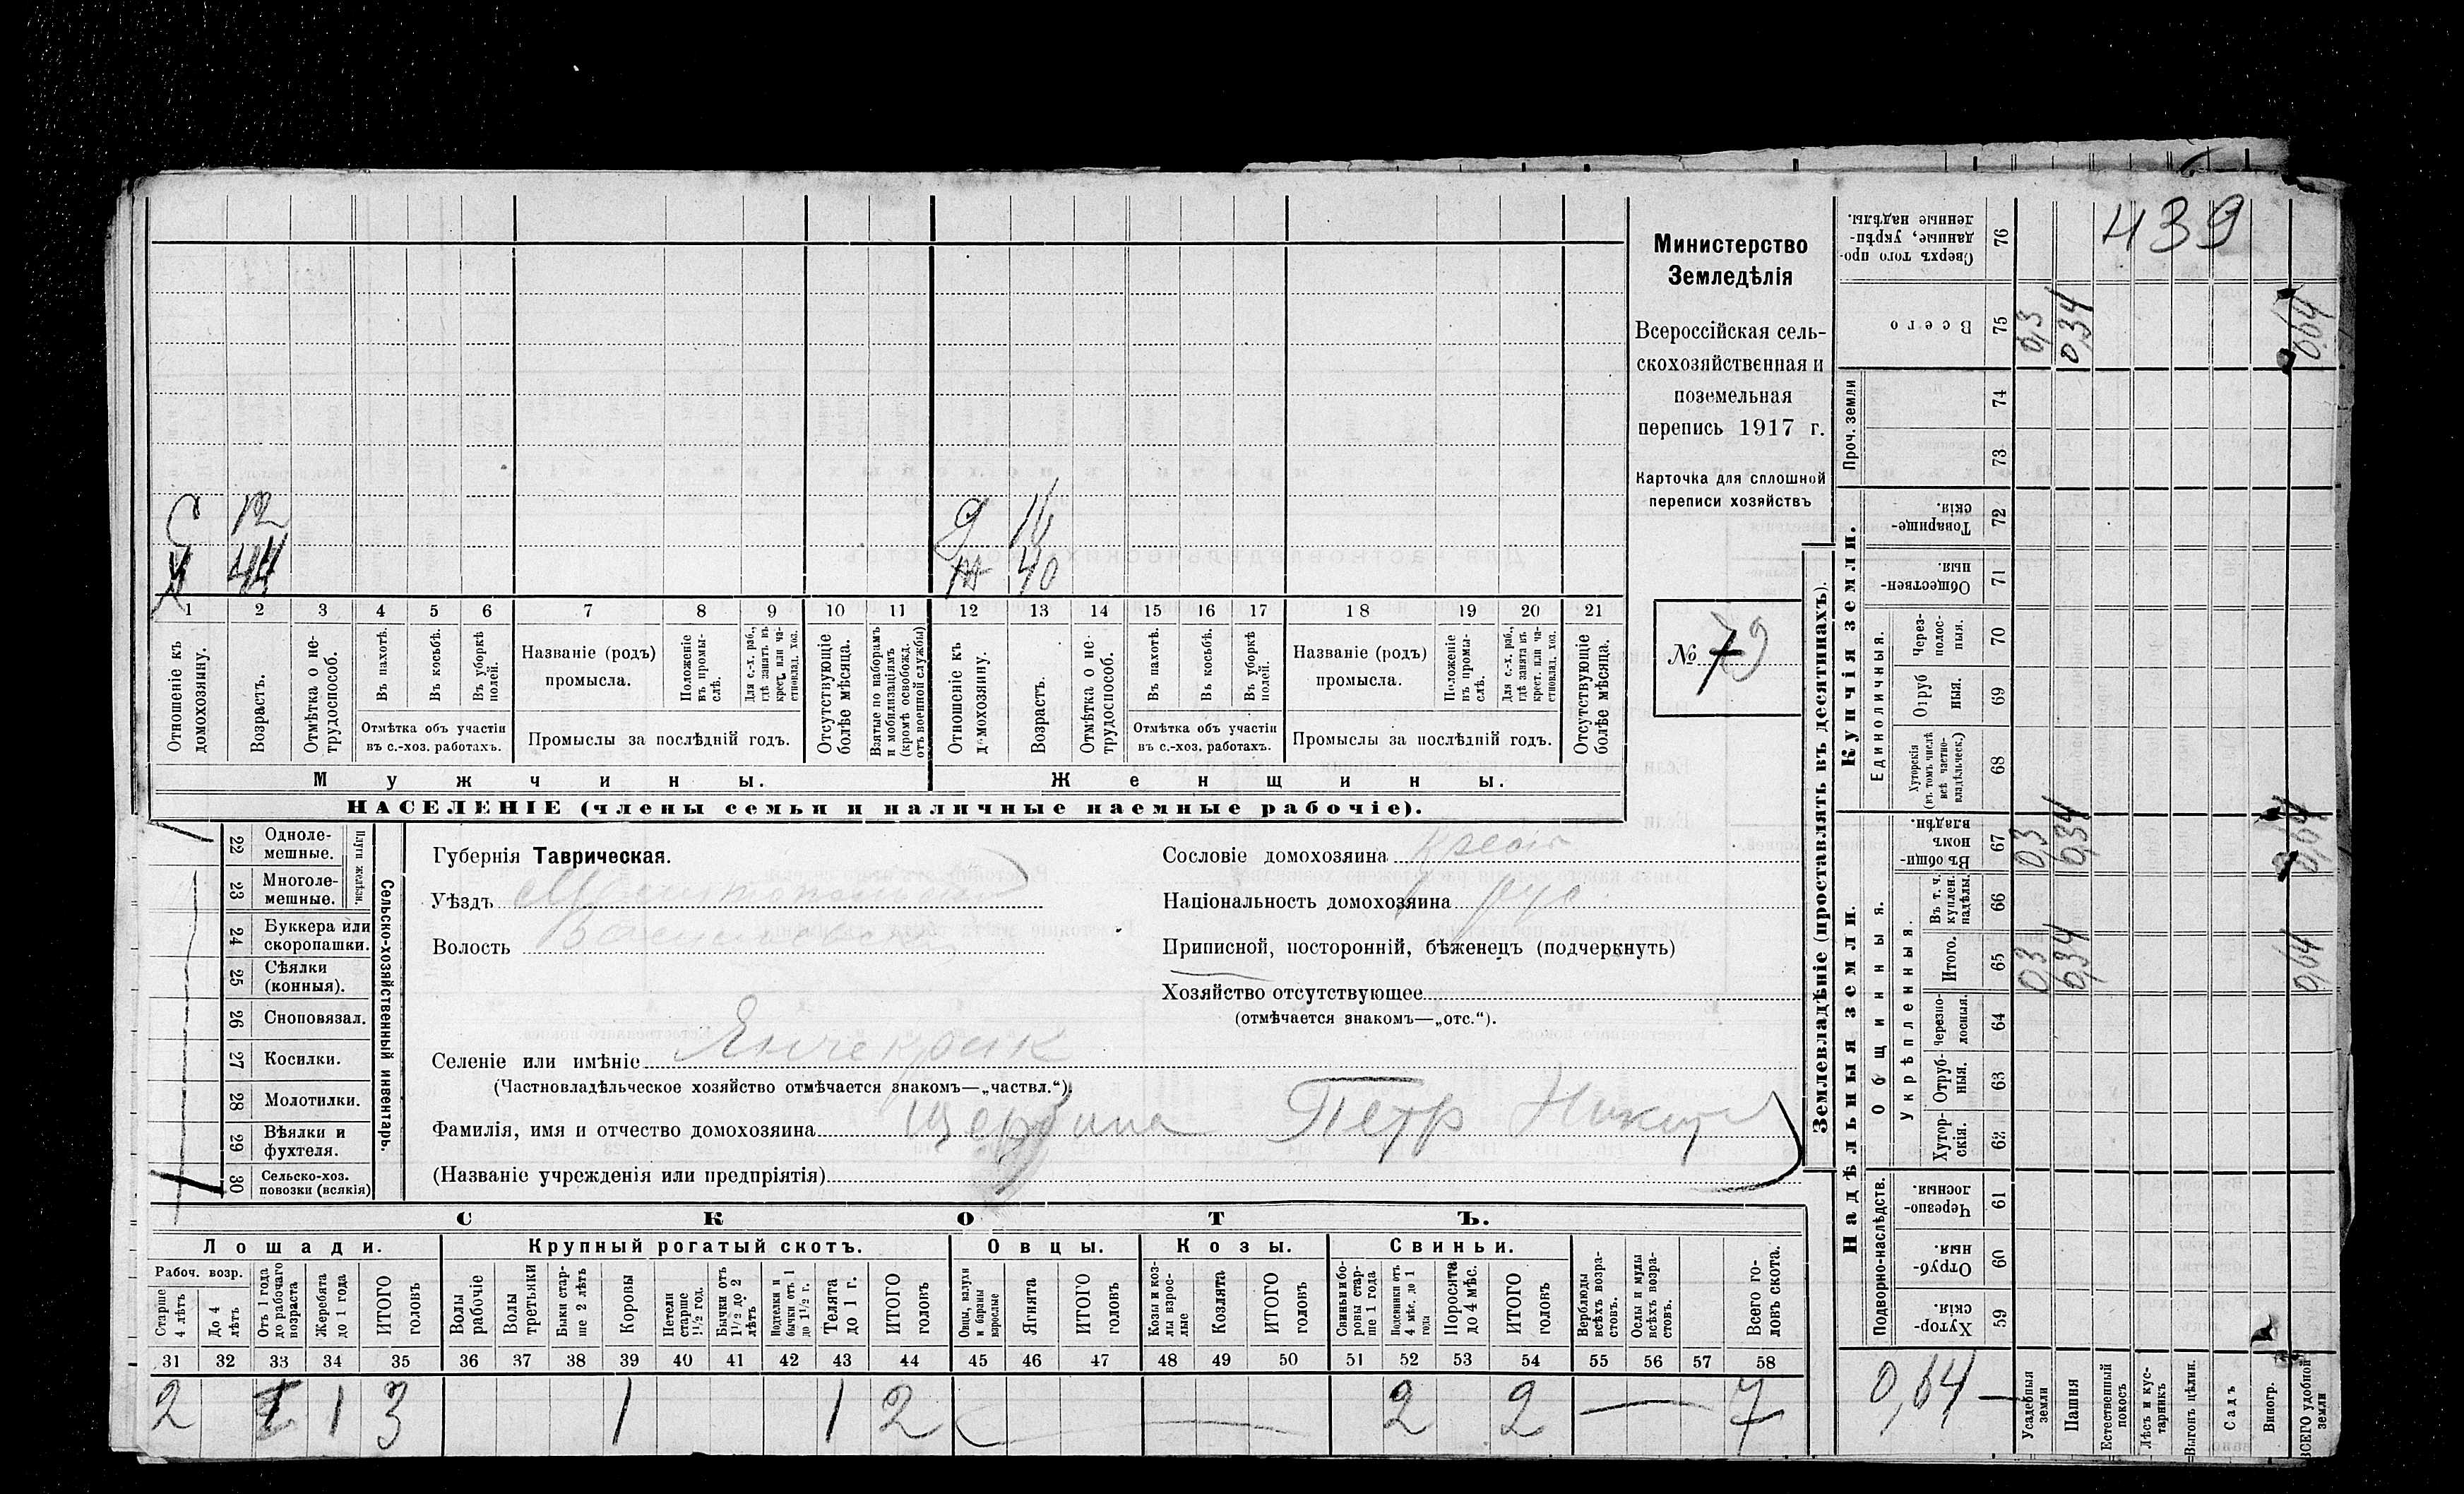 439
Министерство
Земледѣлія
Всероссійская сель-
скохозяйственная и
поземельная
перепись 1917 г.
Карточка для сплошной
переписи хозяйствъ
№ 79
С 12
Х 44
д 16
ж 40
1 2 3 4 5 6 7 8 9 10 11 12 13 14 15 16 17 18 19 20 21
Отношеніе къ домохозяину.
Возрастъ.
Отмѣтка о не-трудоспособ.
Въ пахотѣ.
Въ косьбѣ.
Въ уборкѣ полей.
Отмѣтка объ участіи
въ с.-хоз. работахъ.
Названіе (родъ)
промысла.
Положеніе въ промы-слѣ.
Для с.-х. раб., гдѣ занятъ въ крест. или ча-стновлад. хоз.
Промыслы за послѣдній годъ.
Отсутствующіе болѣе мѣсяца.
Взятые по наборамъ и мобилизаціямъ (кромѣ освобожд. отъ военной службы)
Отношеніе къ домохозяину.
Возрастъ.
Отмѣтка о не-трудоспособ.
Въ пахотѣ.
Въ косьбѣ.
Въ уборкѣ полей.
Отмѣтка объ участіи
въ с.-хоз. работахъ.
Названіе (родъ)
промысла.
Положеніе въ промы-слѣ.
Для с.-х. раб., гдѣ занята въ крест. или ча-стновлад. хоз.
Промыслы за послѣдній годъ.
Отсутствующіе болѣе мѣсяца.
Мужчины.
Женщины.
НАСЕЛЕНІЕ (члены семьи и наличные наемные рабочіе).
22 Одноле-мешные.
23 Многоле-мешные.
Плуги желѣзн.
24 Буккера или скоропашки.
25 Сѣялки (конныя).
26 Сноповязал.
27 Косилки.
28 Молотилки.
29 Вѣялки и фухтеля.
30 Сельско-хоз. повозки (всякія)
Сельско-хозяйственный инвентарь.
Губернія Таврическая.
Уѣздъ Мелитопольский
Волость Васильевская
Сословіе домохозяина крест
Національность домохозяина рус
Приписной, посторонній, бѣженецъ (подчеркнуть)
Хозяйство отсутствующее
(отмѣчается знакомъ—„отс.“).
Селеніе или имѣніе Янчекрак
(Частновладѣльческое хозяйство отмѣчается знакомъ—„частвл.“)
Фамилія, имя и отчество домохозяина Щербина Петр Никит
(Названіе учрежденія или предпріятія)
СКОТЪ.
Лошади.
Крупный рогатый скотъ.
Овцы.
Козы.
Свиньи.
Рабоч. возр.
Старше 4 лѣтъ
До 4 лѣтъ
Отъ 1 года до рабочаго возраста
Жеребята до 1 года
ИТОГО головъ
Волы рабочіе
Волы третьяки
Быки стар-ше 2 лѣтъ
Коровы
Нетели старше 1½ год.
Бычки отъ 1½ до 2 лѣтъ
Подтелки и бычки отъ 1 до 1½ г.
Телята до 1 г.
ИТОГО головъ
Овцы, валухи и бараны взрослые
Ягнята
ИТОГО головъ
Козы и коз-лы взрос-лые
Козлята
ИТОГО головъ
Свиньи и бо-ровы стар-ше 1 года
Подсвинки отъ 4 мѣс. до 1 года
Поросята до 4 мѣс.
ИТОГО головъ
Верблюды всѣхъ возра-стовъ.
Ослы и мулы всѣхъ возра-стовъ.
Всего го-ловъ скота.
31 32 33 34 35 36 37 38 39 40 41 42 43 44 45 46 47 48 49 50 51 52 53 54 55 56 57 58
2 1 3 1 1 2 2 2 7
Землевладѣніе (проставлять въ десятинахъ).
Надѣльныя земли.
Купчія земли.
Проч. земли
Подворно-наслѣдств.
Общинныя.
Укрѣпленныя.
Единоличныя.
76 Сверхъ того про-данные, укрѣп-ленные надѣлы.
75 Всего 0,3 0,34 0,64
74
73
72 Товарище-скія.
71 Обществен-ныя.
70 Через-полос-ныя.
69 Отруб-ныя.
68 Хуторскія (въ томъ числѣ всѣ частно-владѣльческ.)
67 Въ общин-номъ владѣн. 0,3 0,34 0,64
66 Въ т. ч. куплен. надѣлы.
65 Итого. 0,3 0,34 0,64
64 Черезпо-лосныя.
63 Отруб-ныя.
62 Хутор-скія.
61 Черезпо-лосныя.
60 Отруб-ныя.
59 Хутор-скія.
0,64
Усадебныя земли
Пашня
Естественный покосъ
Лѣсъ и кус-тарникъ
Выгонъ цѣлин.
Садъ
Виногр.
ВСЕГО удобной земли